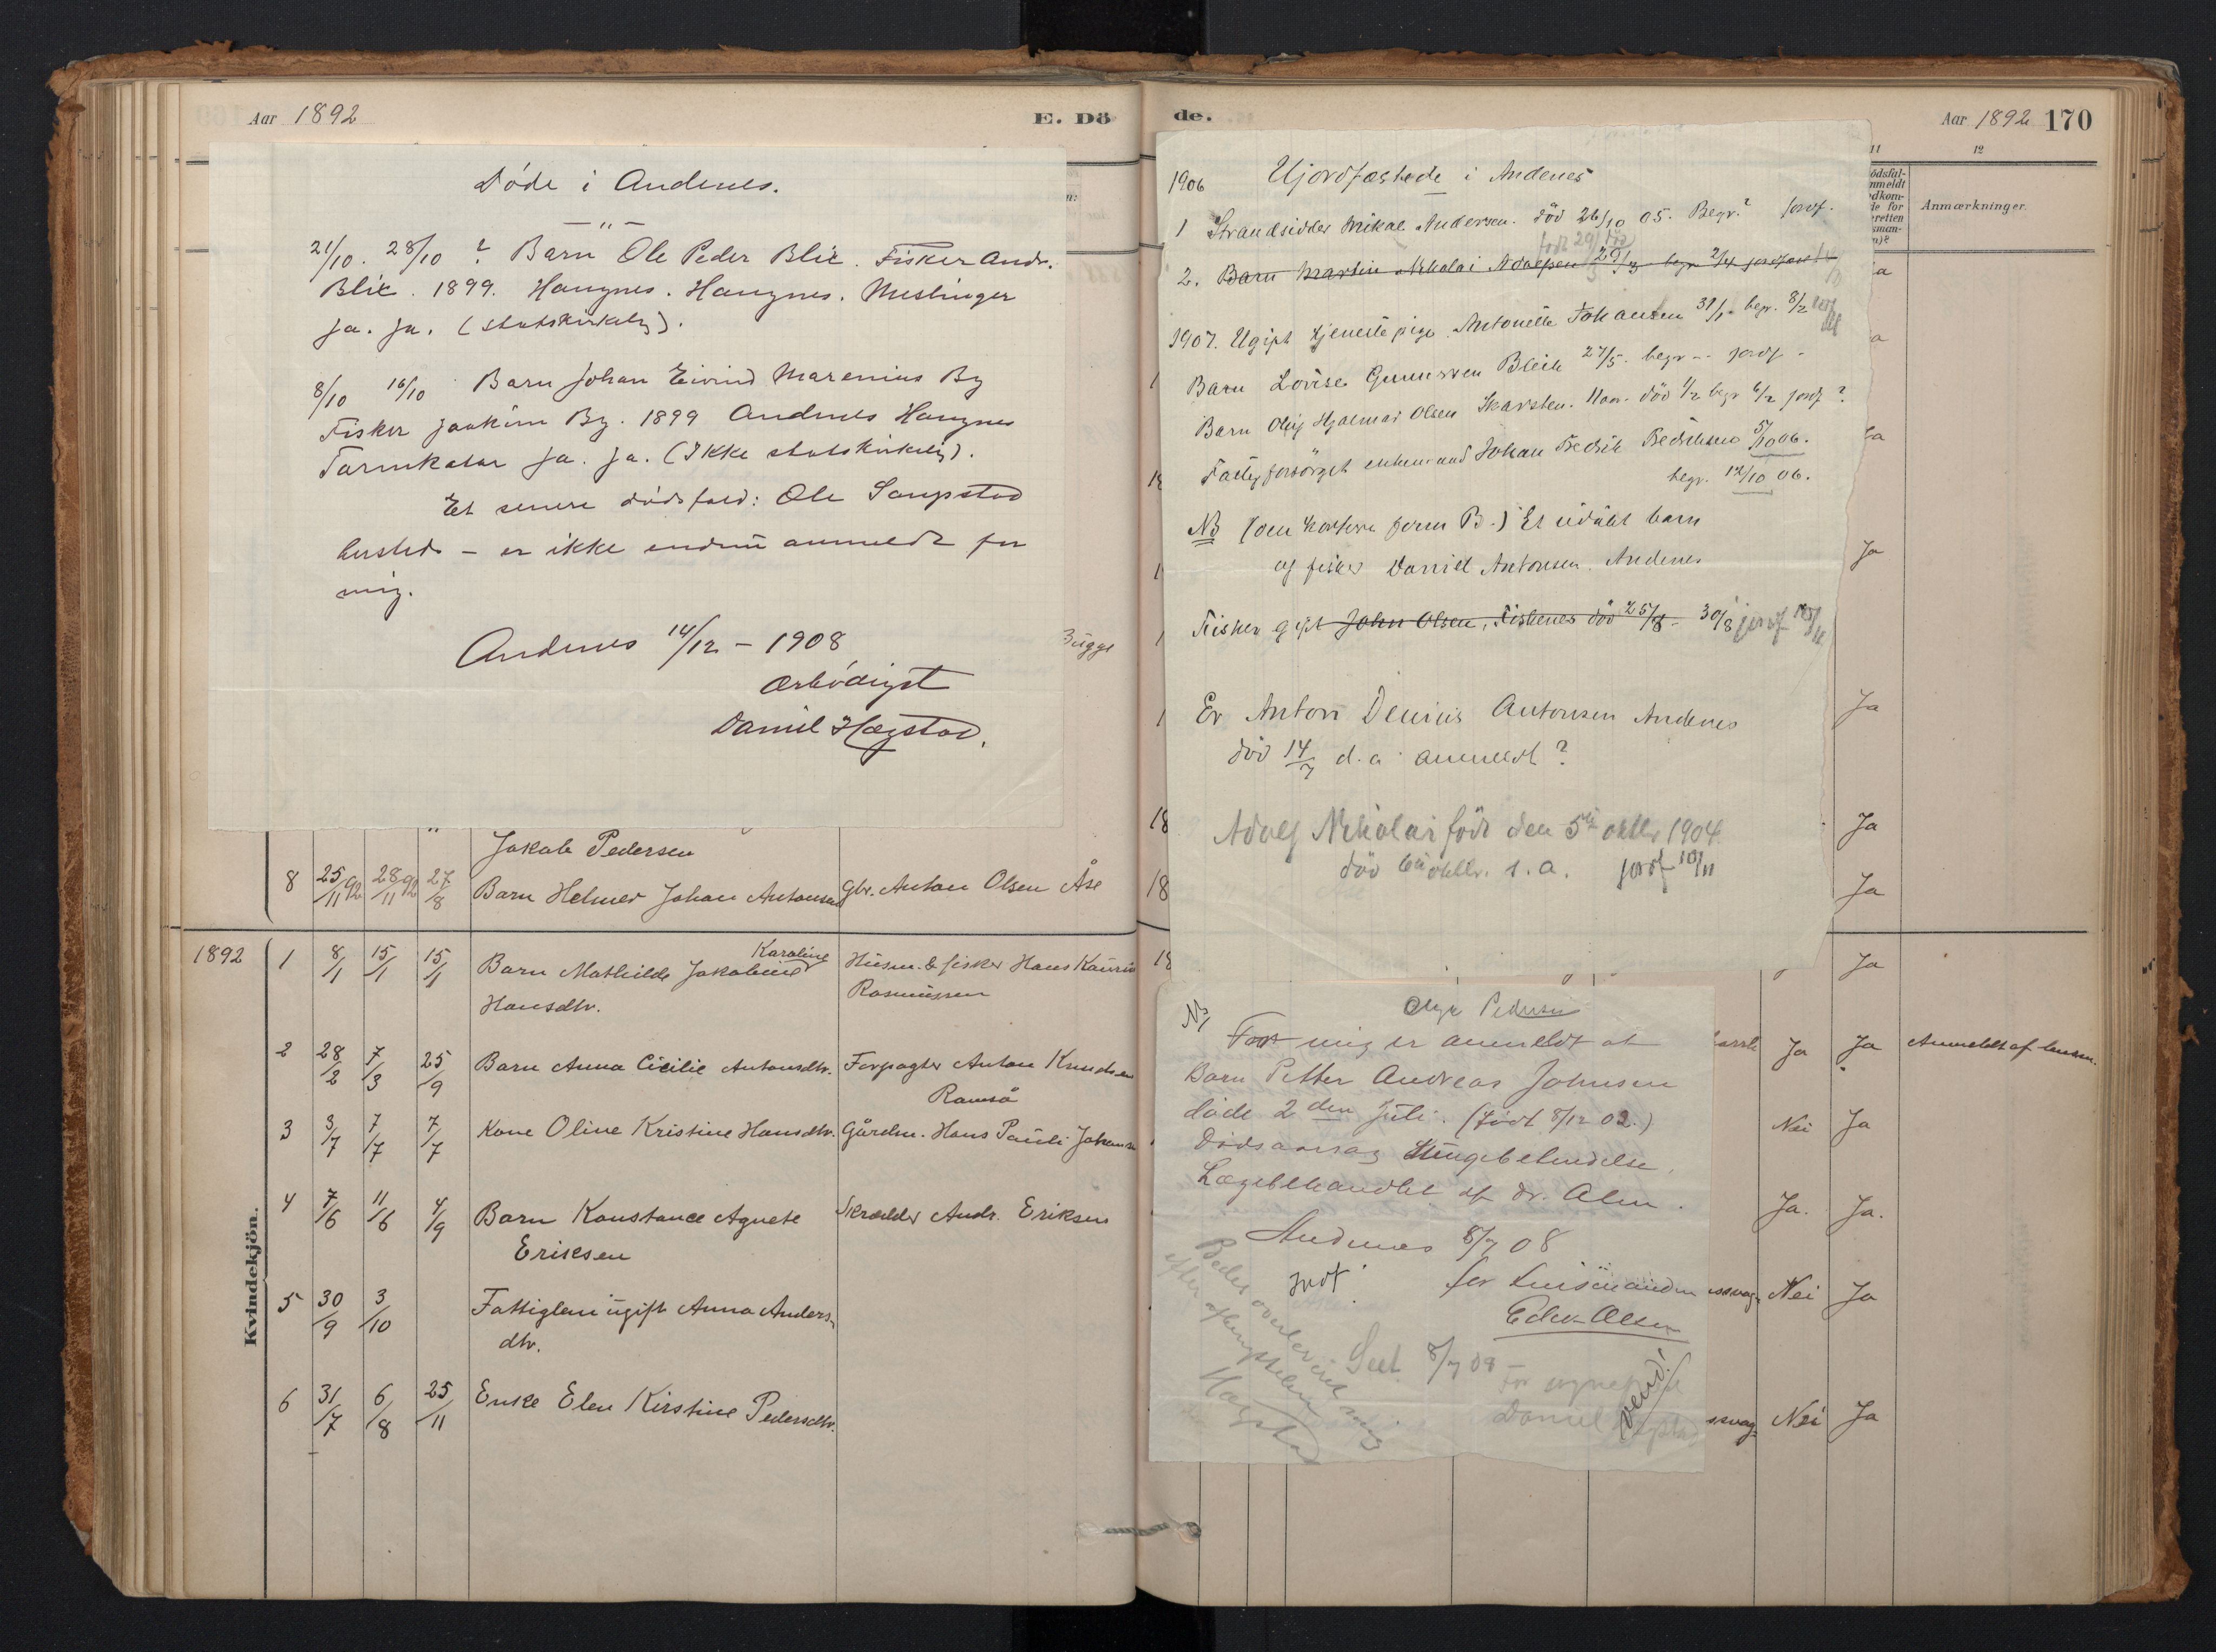 Aar 1892
E. Dö
Döde i Andenes.
— " —
21/10. 28/10 ? Barn Ole Peder Blix. Fisker Andr.
Blix. 1899. Haugnes. Haugnes. Meslinger
ja. ja. (statskirkelig).
8/10 16/10 Barn Johan Eivind Marenius By
Fisker Joakim By. 1899 Andenes Haugnes
Tarmkatar ja. ja. (Ikke statskirkelig).
Et senere dödsfald: Ole
- er ikke endnu anmeldt for
mig.
Andenes 14/12 - 1908
Ærbödigst
Daniel Hægstad.
Bugge
Jakob Pedersen
8 25/11 92 28/11 92 27/8 Barn Helmer Johan Antonsen Gbr. Anton Olsen Åse
1892 1 8/1 15/1 15/1 Barn Mathilde Jakobine Karoline Husm. & fisker Hans Kaurin
Hansdtr. Rasmussen
2 28/2 7/3 25/9 Barn Anna Cicilie Antonsdtr. Forpagter Anton Knudsen
Ramså
3 3/7 7/7 7/7 Kone Oline Kristine Hansdtr. Gårdm. Hans Pauli Johansen
4 7/6 11/6 4/9 Barn Konstance Agnete Skrædder Andr. Eriksen
Eriksen
5 30/9 3/10 Fattiglem ugift Anna Anders-
dtr.
6 31/7 6/8 25/11 Enke Elen Kirstine Pedersdtr.
Kvindekjön.
de.
Aar 1892 170
11 12
Anmærkninger.
1906 Ujordfæstede i Andenes
1 Strandsidder Mikal Andersen. död 26/10 05. Begr.? jordf.
födt 29/ död
2. Barn Martin Nikolai Adolfsen 29/3 begr 2/4 jordfæst
1907. Ugift tjenestepige Antonette Johansen 31/1 begr. 8/2
Barn Lovise Gunnersen Bleik 27/5. begr -- jordf -
Barn Oluf Hjalmar Olsen Skarsten. död 1/2 begr 6/2 jordf?
Fattigforsörget enkemand Johan Fredrik Fredriksen 5/10 06.
begr. 12/10 06.
NB (om kortere form B.) Et udöbt barn
af fisker Daniel Antonsen. Andenes
Fisker gift John Olsen, Fiskenes död 25/8 - 30/8 jordf
Er Anton Denius Antonsen Andenes
död 14/7 d.a anmeldt?
Adolf Nikolai födt den 5te oktbr 1904.
död oktbr. s.a. jordf 10/11
NB
Olga Pedersen
For mig er anmeldt at
Barn Petter Andreas Johnsen
döde 2den Juli. (Födt 8/12 02.)
Dödsaarsag Lungebetændelse.
Lægebehandlet af dr. Alm.
Andenes 8/7 08
jordf. for Lensmanden
Edv. Olsen
Bedes oversendt mig
efter afbenyttelsen
Hægstad
Seet. 8/7 08 -
for sognepræst
Daniel Hægstad
vend!
Ja
Ja
Ja
Ja
Ja
Ja Ja Anmeldt af lensm.
Nei Ja
Ja. Ja.
Nei Ja
Nei Ja